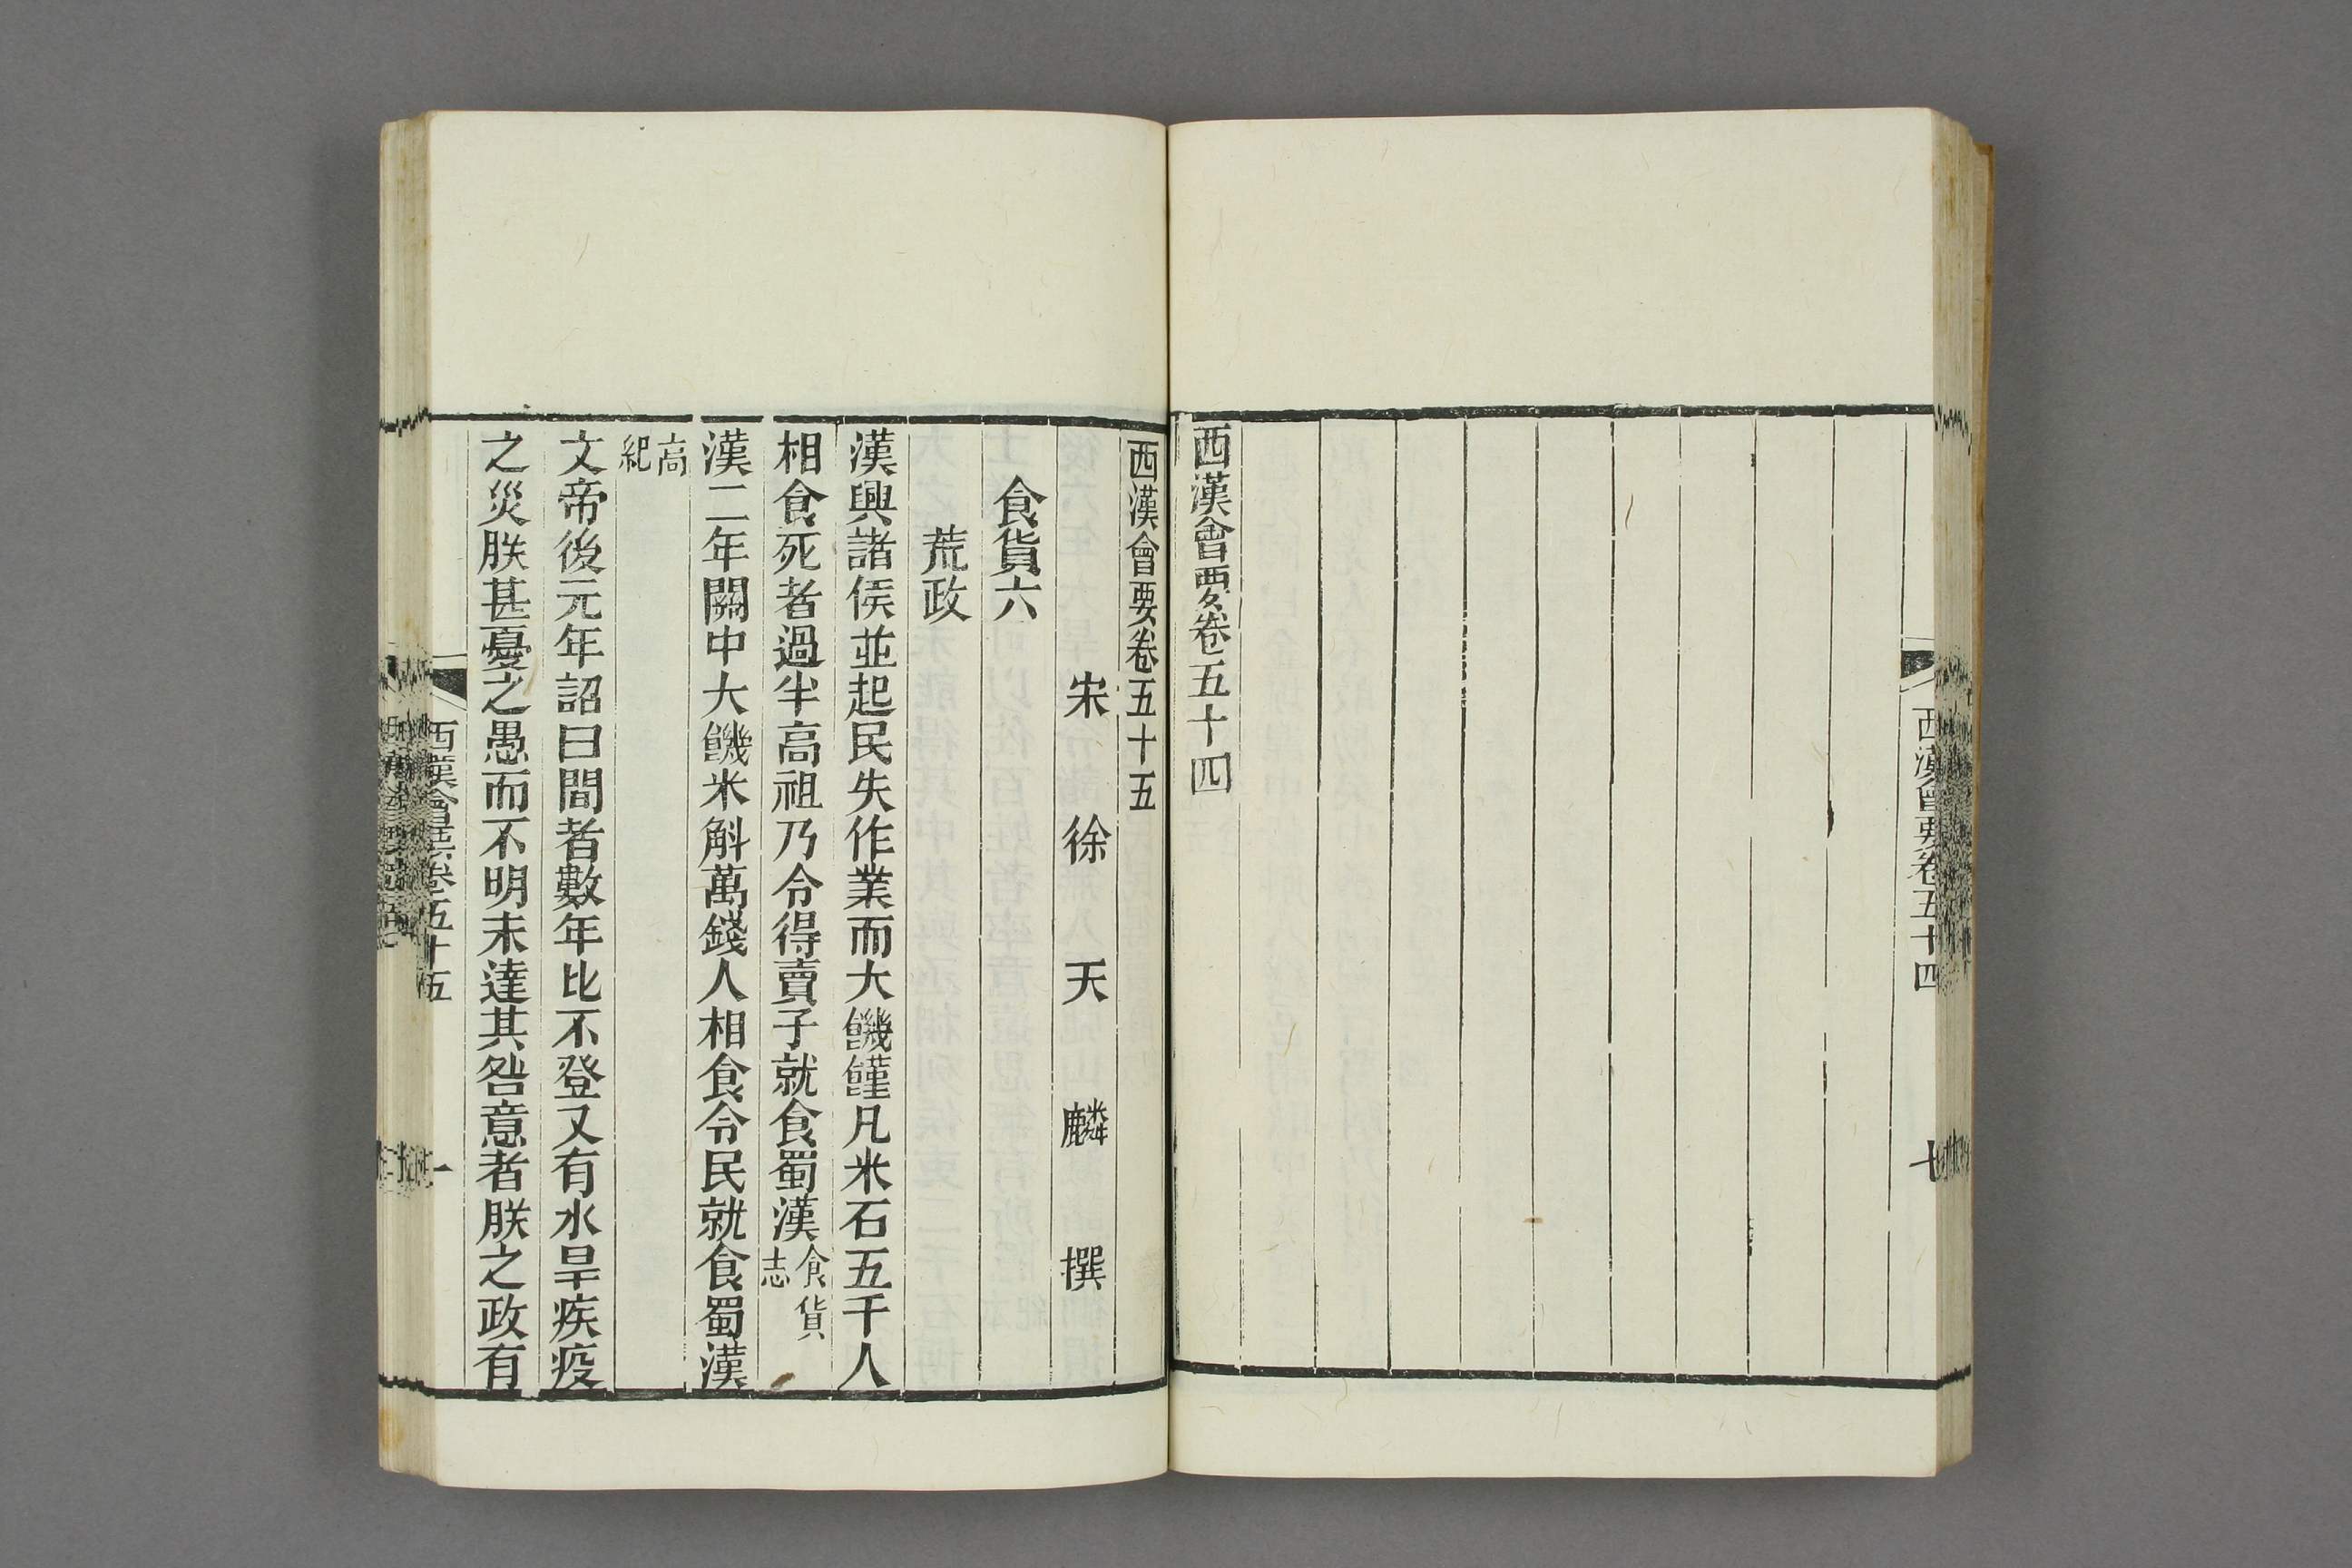 西漢會要卷五十四
七
西漢會要卷五十四
西漢會要卷五十五
宋徐天麟撰
食貨六
荒政
漢興諸侯並起民失作業而大饑饉凡米石五千人
相食死者過半高祖乃令得賣子就食蜀漢食貨志
漢二年關中大饑米斛萬錢人相食令民就食蜀漢
高紀
文帝後元年詔曰間者數年比不登又有水旱疾疫
之災朕甚憂之愚而不明未達其咎意者朕之政有
西漢會要卷五十五
一